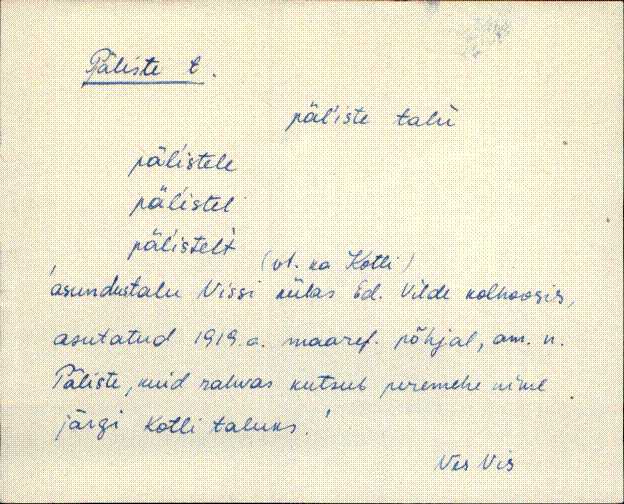 Päliste t.
päl'iste talu
päl'istele
päl'istel
päl'istelt
(vt. ka Kotli)
'asundustalu Vissi külas Ed. Vilde kolhoosis,
asutatud 1919.a. maaref. põhjal, am. n.
Päliste, kuid rahvas kutsub peremehe nime
järgi Kotli taluks.'
Ves Vis